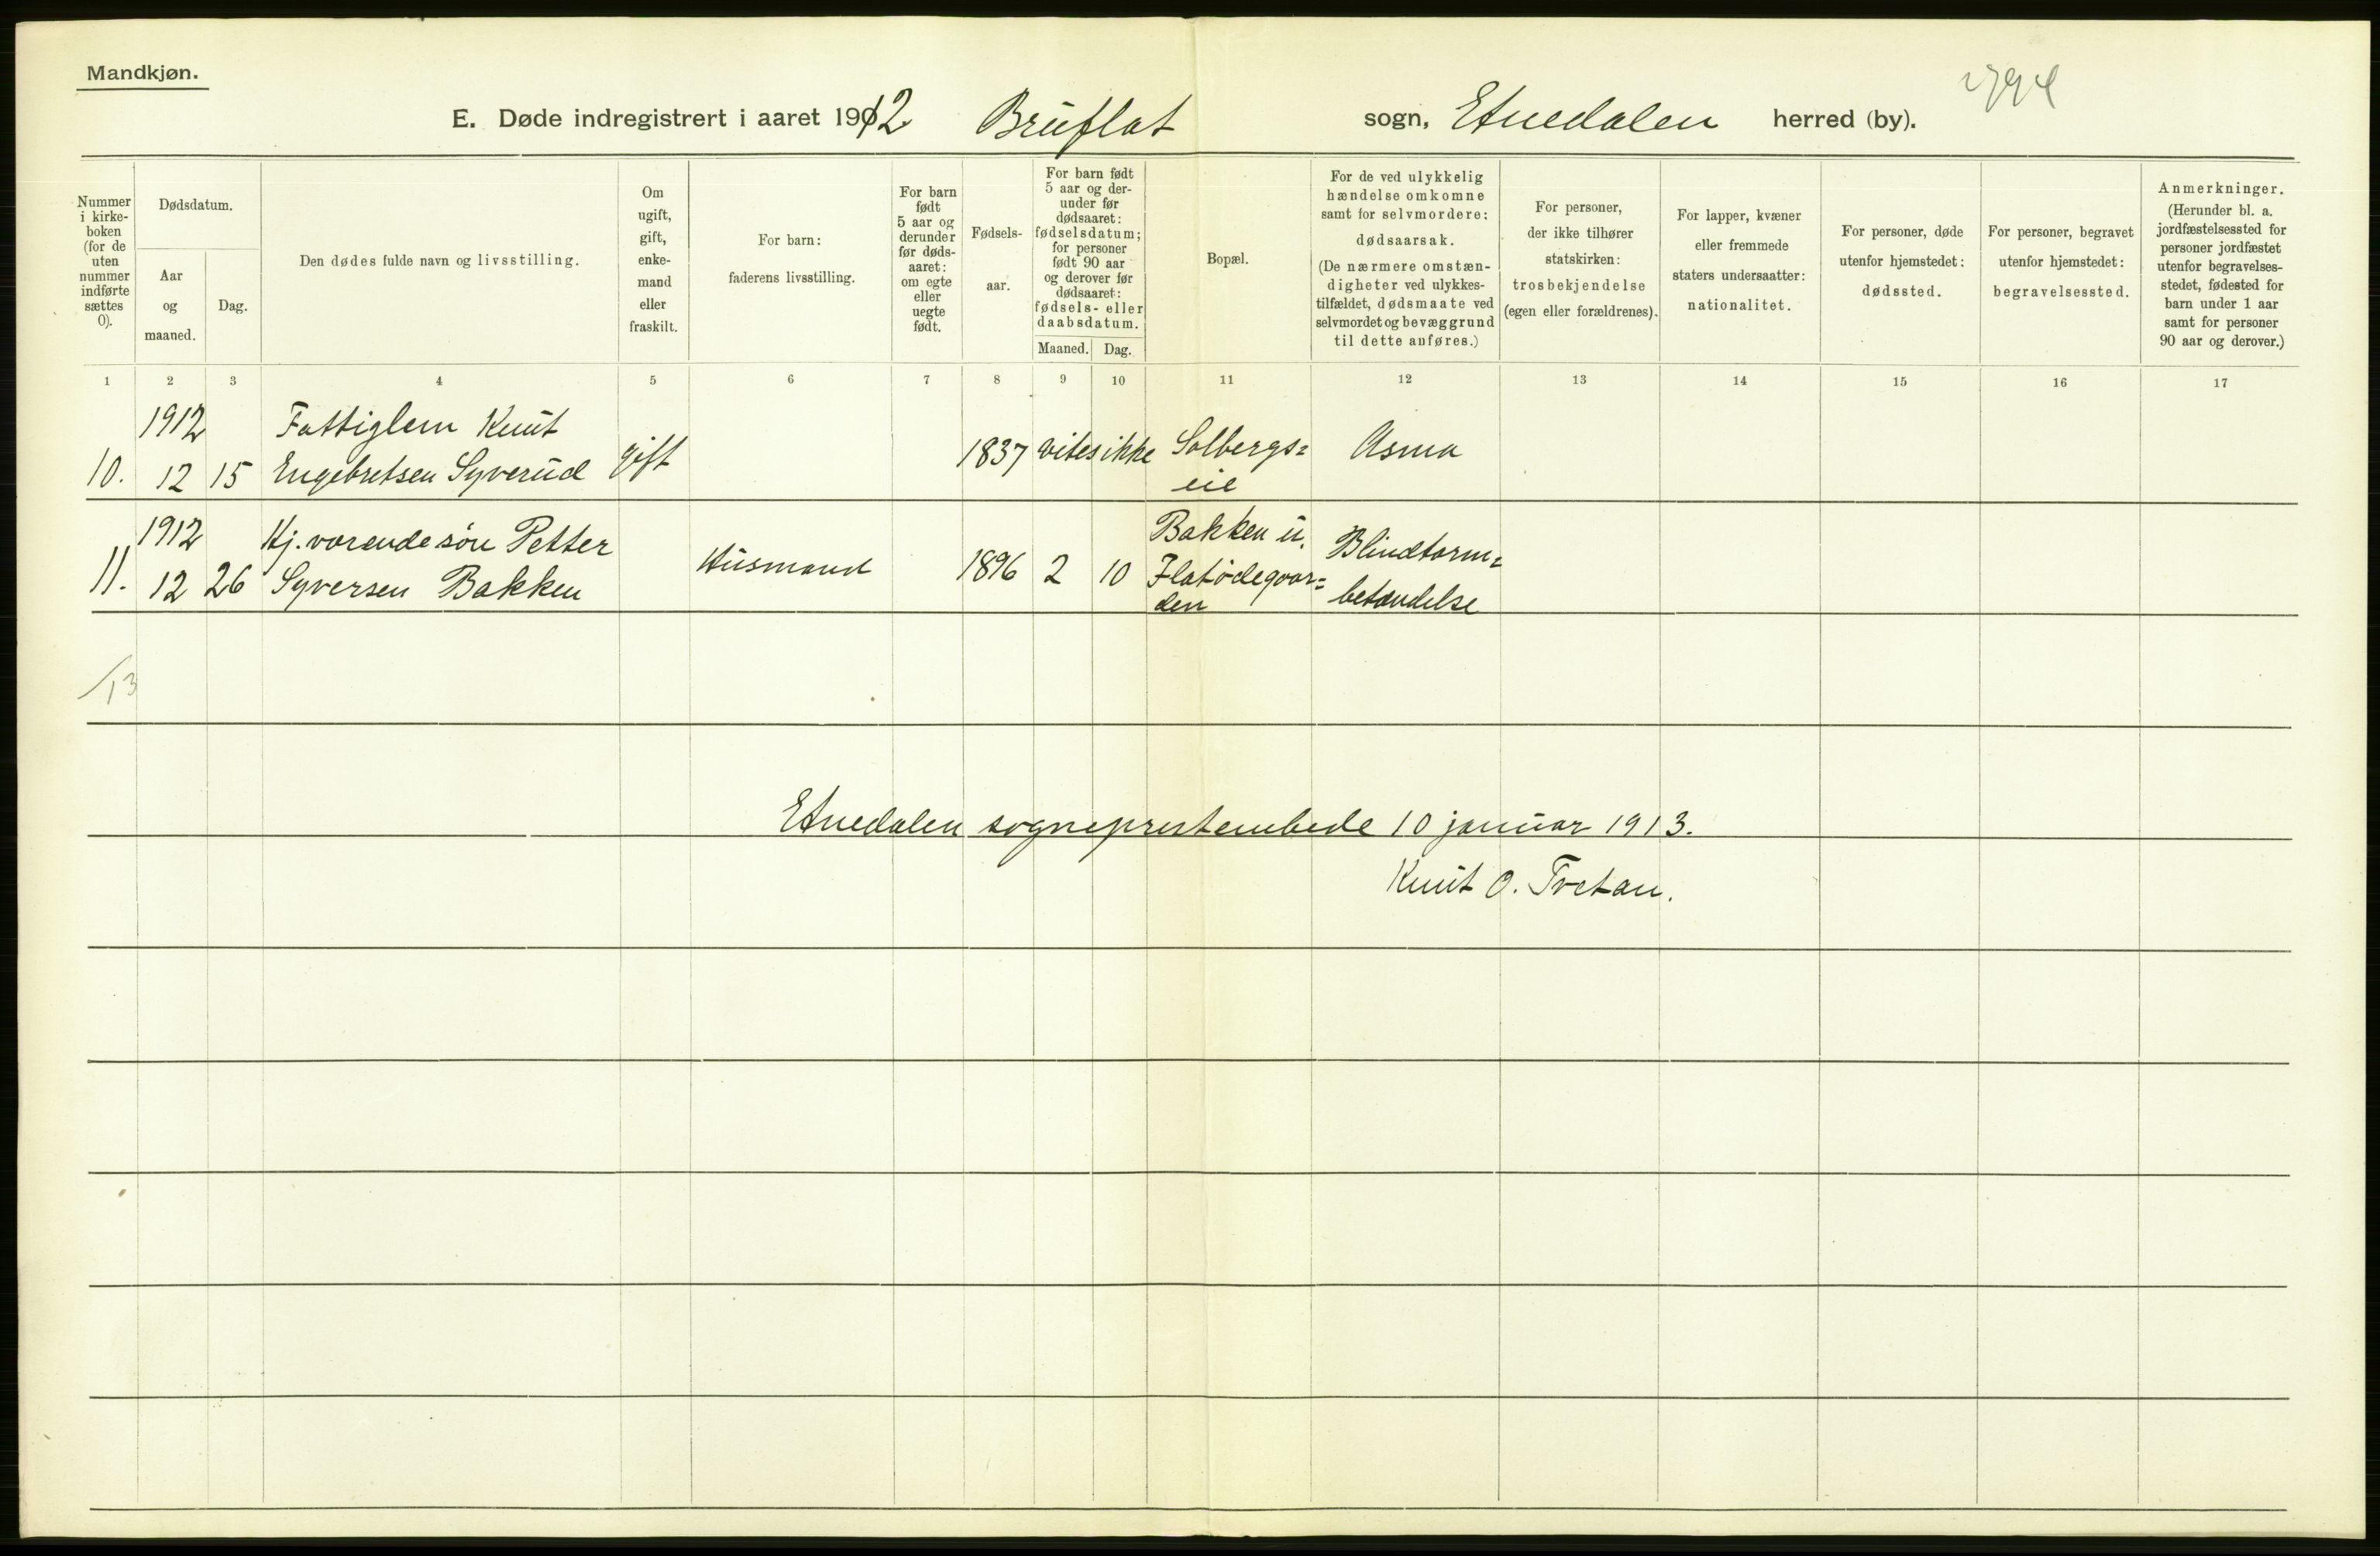 Mandkjøn.
E. Døde indregistrert i aaret 1912 Bruflat sogn, Etnedalen herred (by).
Nummer
i kirke-
boken
(for de
uten
nummer
indførte
sættes
0).
Dødsdatum.
Aar
og
maaned.
Dag.
Den dødes fulde navn og livsstilling.
Om
ugift,
gift,
enke-
mand
eller
fraskilt.
For barn:
faderens livsstilling.
For barn
født
5 aar og
derunder
før døds-
aaret:
om egte
eller
uegte
født.
Fødsels-
aar.
For barn født
5 aar og der-
under før
dødsaaret:
fødselsdatum;
for personer
født 90 aar
og derover før
dødsaaret:
fødsels- eller
daabsdatum.
Maaned. Dag.
Bopæl.
For de ved ulykkelig
hændelse omkomne
samt for selvmordere:
dødsaarsak.
(De nærmere omstæn-
digheter ved ulykkes-
tilfældet, dødsmaate ved
selvmordet og bevæggrund
til dette anføres.)
For personer,
der ikke tilhører
statskirken:
trosbekjendelse
(egen eller forældrenes).
For lapper, kvæner
eller fremmede
staters undersaatter:
nationalitet.
For personer, døde
utenfor hjemstedet:
dødssted.
For personer, begravet
utenfor hjemstedet:
begravelsessted.
Anmerkninger.
(Herunder bl. a.
jordfæstelsessted for
personer jordfæstet
utenfor begravelses-
stedet, fødested for
barn under 1 aar
samt for personer
90 aar og derover.)
1 2 3 4 5 6 7 8 9 10 11 12 13 14 15 16 17
1912 Fattiglem Knut
10. 12 15 Engebretsen Syverud gift 1837 vites ikke Solbergs= Asma
eie
1912 Hj. værende søn Petter Bakken u. Blindtarm=
11. 12 26 Syversen Bakken Husmand 1896 2 10 Flatødegaar= betændelse
den
/13
Etnedalen sogneprestembede 10 januar 1913.
Knut O. Tretan.